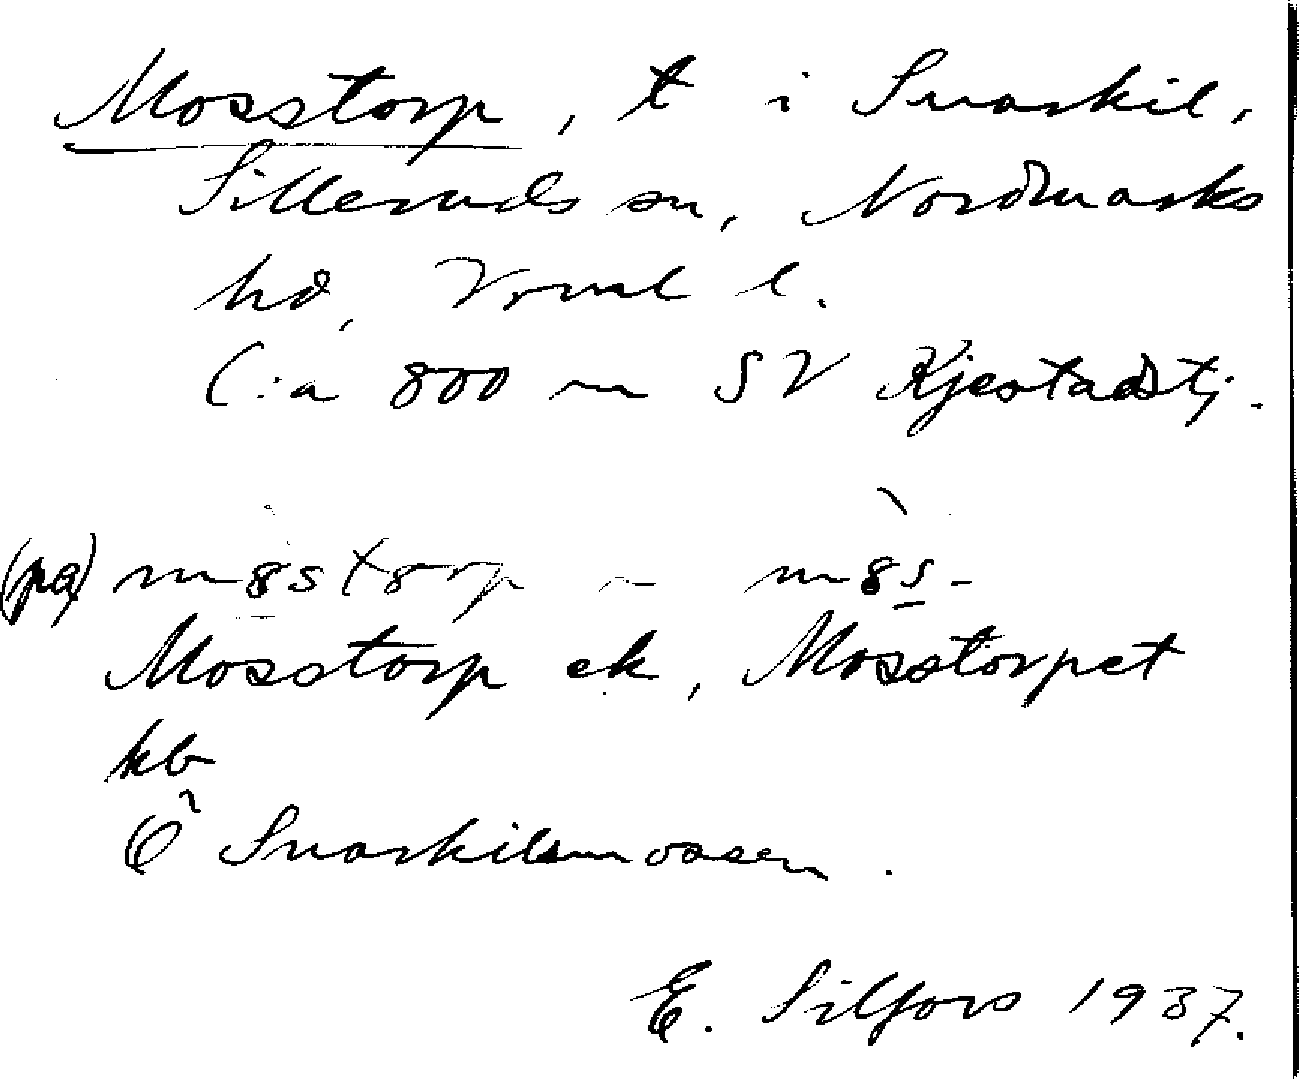 Mosstorp, t i Snarkil,
Silleruds sn, Nordmarks
hd, Vrml l.
C:a 800 m SV Kjestadstj.
(på) m8st8rp ~ m8s-
Mosstorp ek, Mosstorpet
kb
Ö Snarkilsmossen.
E. Silfors 1937.